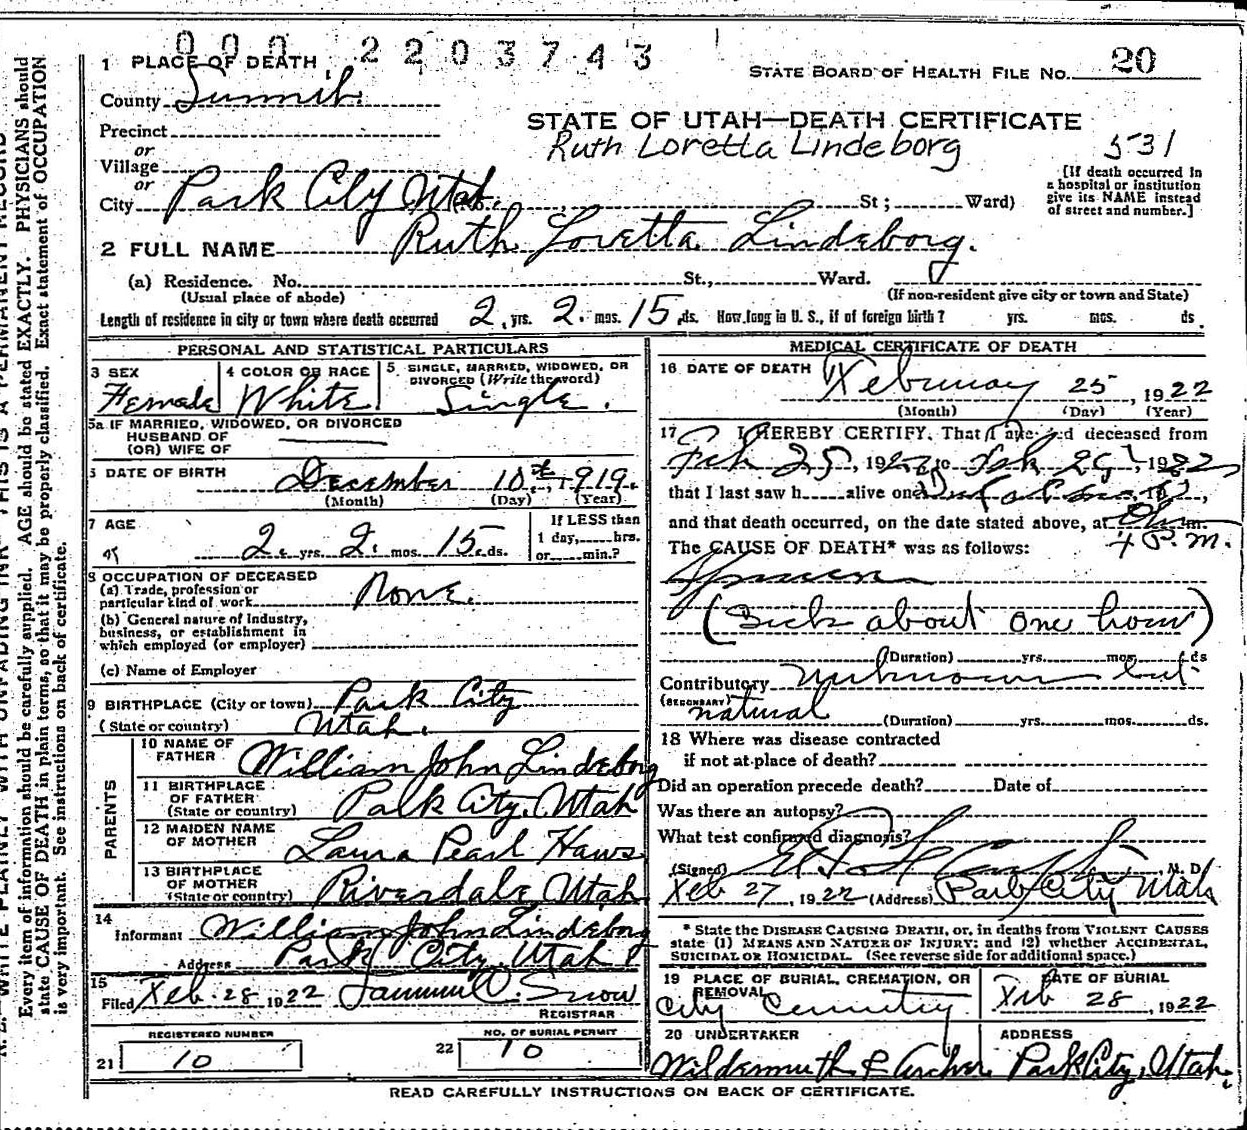 000 2203743
1 PLACE OF DEATH
STATE BOARD OF HEALTH FILE No. 20
County Summit
STATE OF UTAH—DEATH CERTIFICATE
Precinct
Ruth Loretta Lindeborg 531
or
Village
or
City Park City Utah. St; Ward)
[If death occurred in
a hospital or institution
give its NAME instead
of street and number.]
2 FULL NAME Ruth Loretta Lindeborg.
(a) Residence. No. St., Ward.
(Usual place of abode) (If non-resident give city or town and State)
Length of residence in city or town where death occurred 2 yrs. 2 mos. 15 ds. How long in U. S., if of foreign birth? yrs. mos. ds.
PERSONAL AND STATISTICAL PARTICULARS
3 SEX 4 COLOR OR RACE 5 SINGLE, MARRIED, WIDOWED, OR
DIVORCED (Write the word)
Female White. Single.
5a IF MARRIED, WIDOWED, OR DIVORCED
HUSBAND OF
(OR) WIFE OF
6 DATE OF BIRTH December 10th, 1919.
(Month) (Day) (Year)
7 AGE 2. yrs. 2. mos. 15. ds.
If LESS than
1 day, hrs.
or min.?
8 OCCUPATION OF DECEASED
(a) Trade, profession or
particular kind of work None.
(b) General nature of Industry,
business, or establishment in
which employed (or employer)
(c) Name of Employer
9 BIRTHPLACE (City or town) Park City
(State or country) Utah.
PARENTS
10 NAME OF
FATHER William John Lindeborg
11 BIRTHPLACE
OF FATHER
(State or country) Park City, Utah
12 MAIDEN NAME
OF MOTHER Laura Pearl Haws
13 BIRTHPLACE
OF MOTHER
(State or country) Riverdale, Utah
14
Informant William John Lindeborg
Address Park City, Utah
15
Filed Feb. 28, 1922 Snow
REGISTRAR
REGISTERED NUMBER
21 10
NO. OF BURIAL PERMIT
22 10
MEDICAL CERTIFICATE OF DEATH
16 DATE OF DEATH February 25, 1922
(Month) (Day) (Year)
17 I HEREBY CERTIFY, That I deceased from
Feb 25, 192 to Feb 25, 1922
that I last saw h alive on
and that death occurred, on the date stated above, at m.
4 P.M.
The CAUSE OF DEATH* was as follows:
(Sick about one hour)
(Duration) yrs. mos. ds
Contributory Unknown but
(SECONDARY) natural
(Duration) yrs. mos. ds.
18 Where was disease contracted
if not at place of death?
Did an operation precede death? Date of
Was there an autopsy?
What test confirmed diagnosis?
(Signed) M. D.
Feb 27, 1922 (Address) Park City Utah
* State the DISEASE CAUSING DEATH, or, in deaths from VIOLENT CAUSES
state (1) MEANS AND NATURE OF INJURY; and (2) whether ACCIDENTAL,
SUICIDAL OR HOMICIDAL. (See reverse side for additional space.)
19 PLACE OF BURIAL, CREMATION, OR
REMOVAL
City Cemetery
DATE OF BURIAL
Feb 28, 1922
20 UNDERTAKER ADDRESS
Wildermuth & Archer Park City, Utah.
READ CAREFULLY INSTRUCTIONS ON BACK OF CERTIFICATE.
Every item of information should be carefully applied. AGE should be stated EXACTLY. PHYSICIANS should
state CAUSE OF DEATH in plain terms, so that it may be properly classified. Exact statement of OCCUPATION
is very important. See instructions on back of certificate.